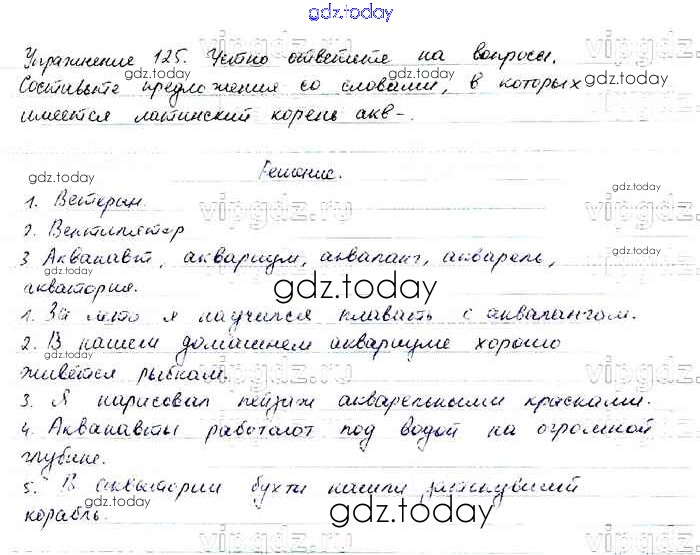 gdz.today
Упражнение 125. Устно ответьте на вопросы.
Составьте предложения со словами, в которых
имеется латинский корень акв-.
Решение.
1. Ветеран.
2. Вентилятор
3. Акванавт, аквариум, акваланг, акварель,
акватория.
1. За лето я научился плавать с аквалангом.
2. В нашем домашнем аквариуме хорошо
живётся рыбкам.
3. Я нарисовал пейзаж акварельными красками.
4. Акванавты работают под водой на огромной
глубине.
5. В акватории бухты нашли затонувший
корабль.
gdz.today
vipgdz.ru